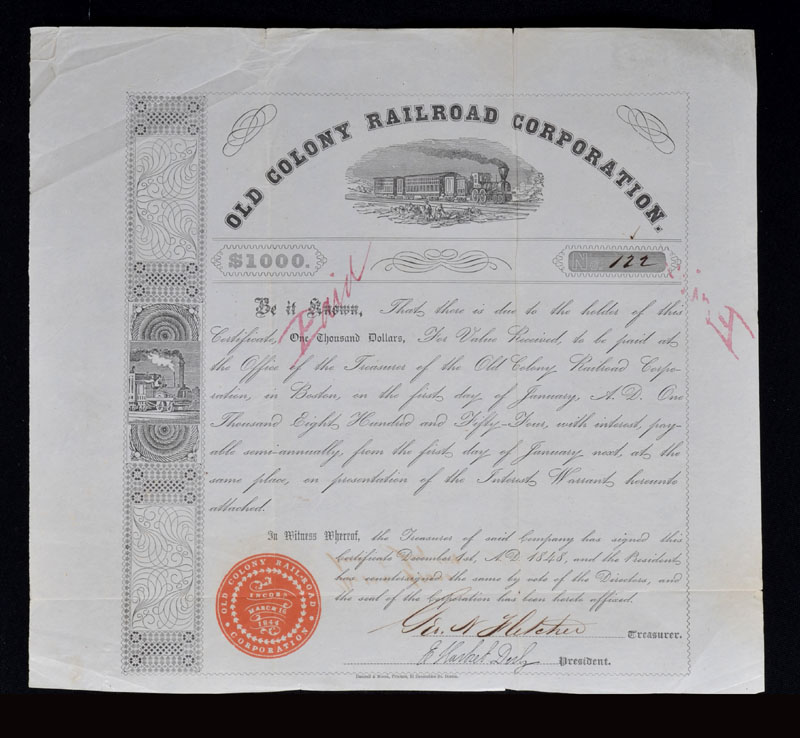 OLD COLONY RAILROAD CORPORATION.
$1000.
No 122
Paid
Be it Known, That there is due to the holder of this
Certificate, One Thousand Dollars, For Value Received, to be paid at
the Office of the Treasurer of the Old Colony Railroad Corpo-
ration, in Boston, on the first day of January, A. D. One
Thousand Eight Hundred and Fifty-Four, with interest, pay-
able semi-annually, from the first day of January next, at the
same place, on presentation of the Interest Warrant hereunto
attached.
In Witness Whereof, the Treasurer of said Company has signed this
Certificate December 1st, A. D. 1848, and the President
has countersigned the same by vote of the Directors, and
the seal of the Corporation has been hereto affixed.
OLD COLONY RAIL-ROAD
CORPORATION
INCORP.
MARCH 16
1844
Geo. N. Fletcher Treasurer.
E Hasket Derby President.